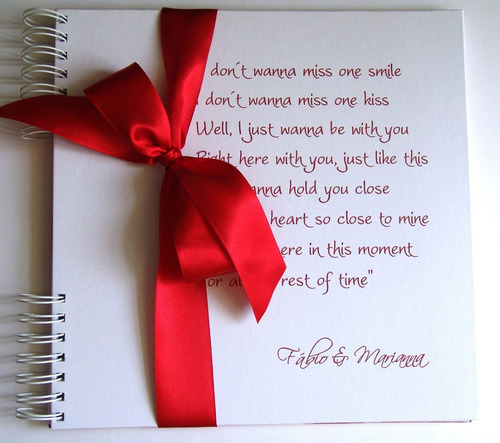 don´t wanna miss one smile
don´t wanna miss one kiss
Well, I just wanna be with you
Right here with you, just like this
hold you close
heart so close to mine
in this moment
rest of time"
Fábio & Marianna